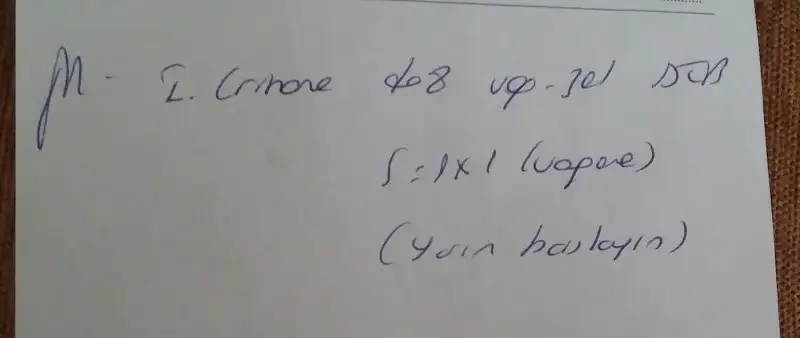 I. Crinone %8 vap-jel DCB
S: 1x1 (vagene)
(yarın başlayın)